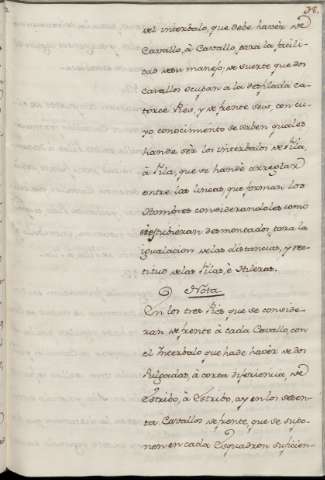 del interbalo, que debe haver de
Cavallo, à Cavallo, para la facili-
dad de su manejo, de suerte que dos
cavallos ocupan a la desfilada ca-
torce Pies, y de frente seis, con cu-
yo conocimiento se saben quales
han de ser los interbalos de fila,
à fila, que se han de arreglar
entre las lineas, que forman los
Hombres considerandoles como
si estubieran desmontados, para la
igualacion de las distancias, y
de las filas, è Hileras.
Nota
En los tres Pies, que se conside-
ran de frente à cada Cavallo, con
el Interbalo que ha de haver de dos
Pulgadas, à corta diferiencia, de
Estribo, à Estribo, ay en los seten-
ta Cavallos de frente, que se supo-
nen en cada Esquadron suficien-